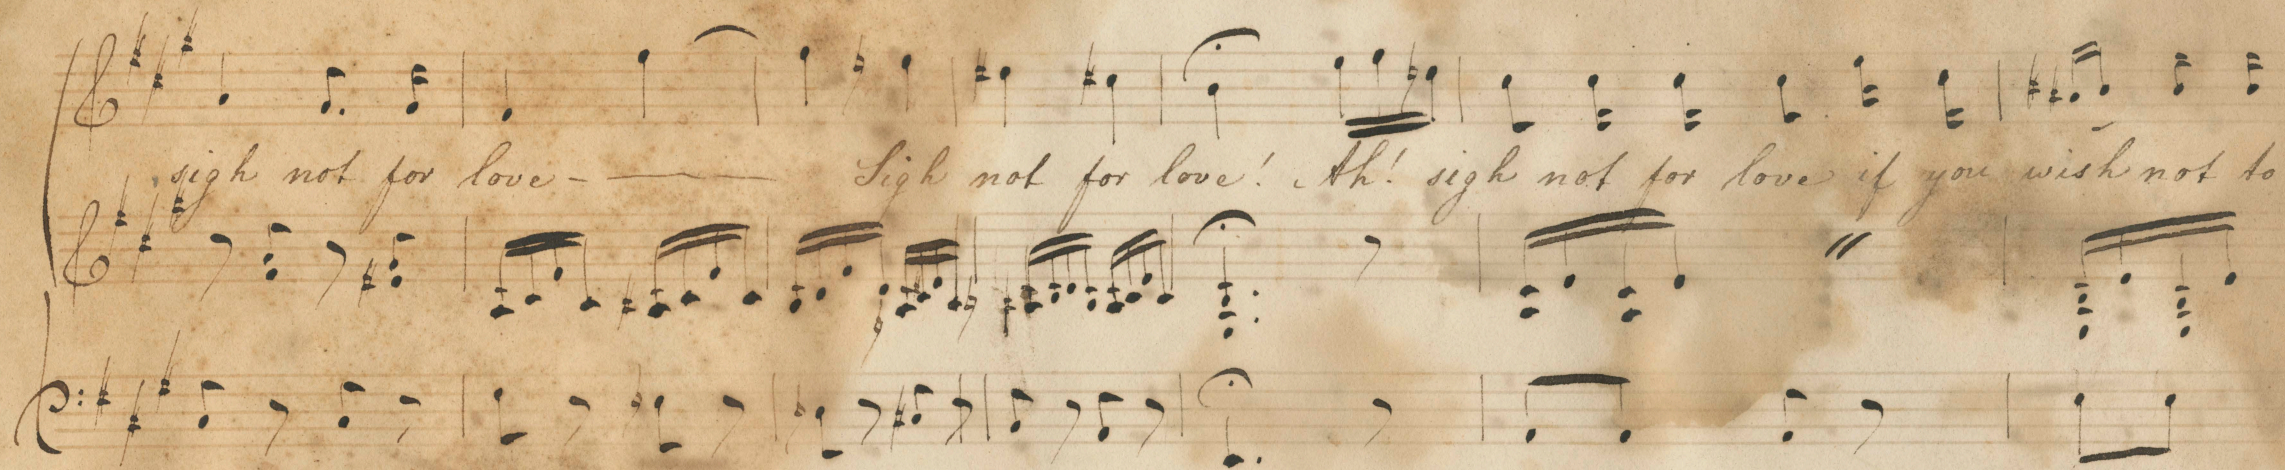 sigh not for love - Sigh not for love! Ah! sigh not for love if you wish not to